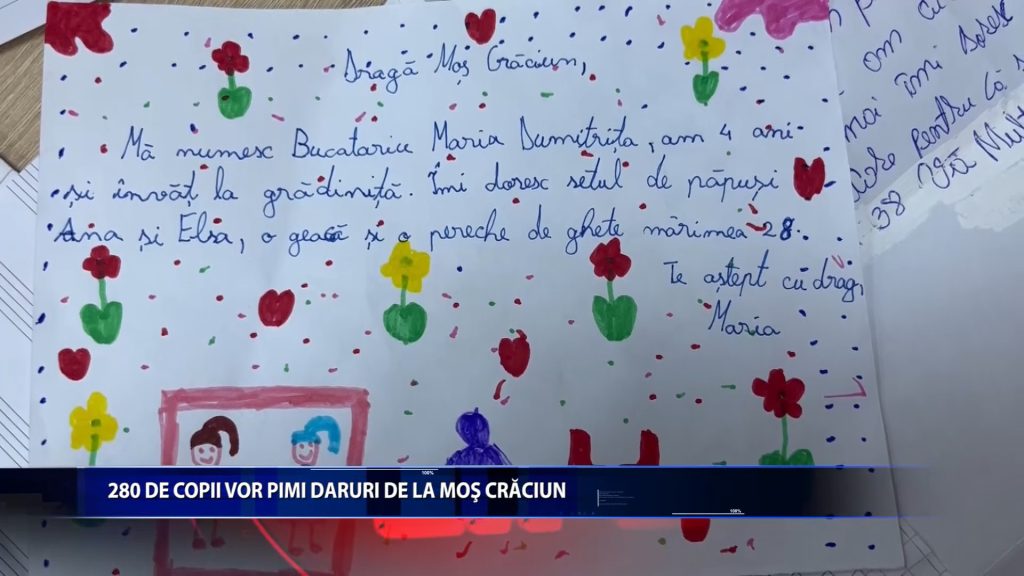 Dragă Moș Crăciun,
Mă numesc Bucatariu Maria Dumitrița, am 4 ani
și învăț la grădiniță. Îmi doresc setul de păpuși
Ana și Elsa, o geacă și o pereche de ghete mărimea 28.
Te aștept cu drag,
Maria
om
îmi doresc
pentru că
38 Vă Mult
100%
280 DE COPII VOR PIMI DARURI DE LA MOȘ CRĂCIUN
100%